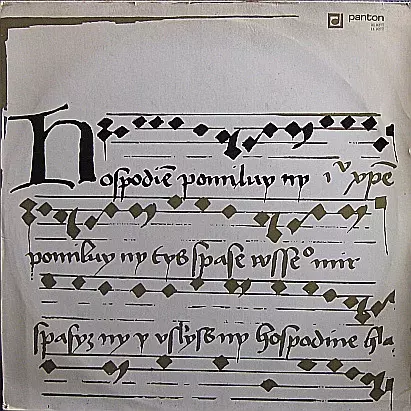 panton
Hospodiē pomiluy ny
pomiluy ny tys spase wsse° mir
spasyz ny y uslyss ny hospodine hla